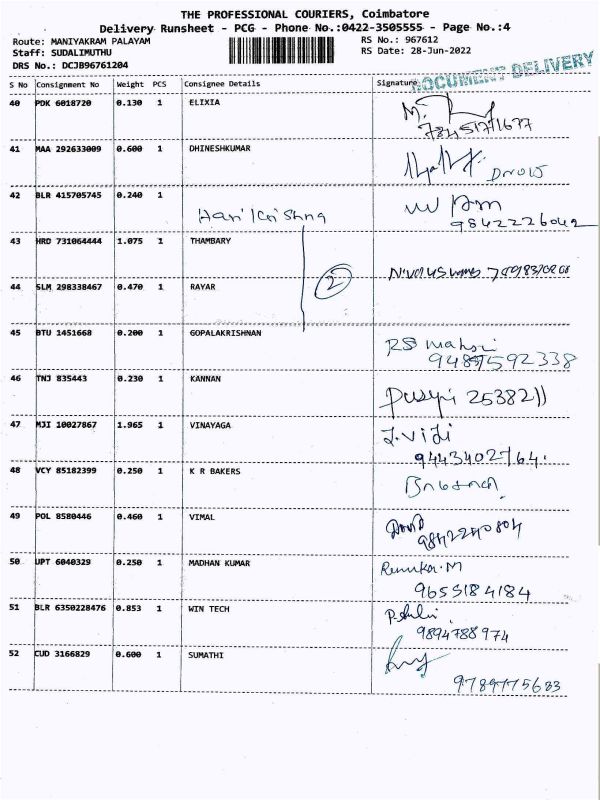 THE PROFESSIONAL COURIERS, Coimbatore
Delivery Runsheet - PCG - Phone No.:0422-3505555 - Page No.:4
Route: MANIYAKRAM PALAYAM RS No.: 967612
Staff: SUDALIMUTHU RS Date: 28-Jun-2022
DRS No.: DCJB96761204
DOCUMENT DELIVERY
S No Consignment No Weight PCS Consignee Details Signature
40 PDK 6018720 0.130 1 ELIXIA
41 MAA 292633009 0.600 1 DHINESHKUMAR
42 BLR 415705745 0.240 1
Hari Krishna
9842226042
43 HRD 731064444 1.075 1 THAMBARY
2
44 SLM 298338467 0.470 1 RAYAR
45 BTU 1451668 0.200 1 GOPALAKRISHNAN
46 TNJ 835443 0.230 1 KANNAN
47 MJI 10027867 1.965 1 VINAYAGA
9443402764.
48 VCY 85182399 0.250 1 K R BAKERS
49 POL 8580446 0.460 1 VIMAL
9842240804
50 UPT 6040329 0.250 1 MADHAN KUMAR
Renuka.M
9655184184
51 BLR 6350228476 0.853 1 WIN TECH
9894788974
52 CUD 3166829 0.600 1 SUMATHI
9789775683